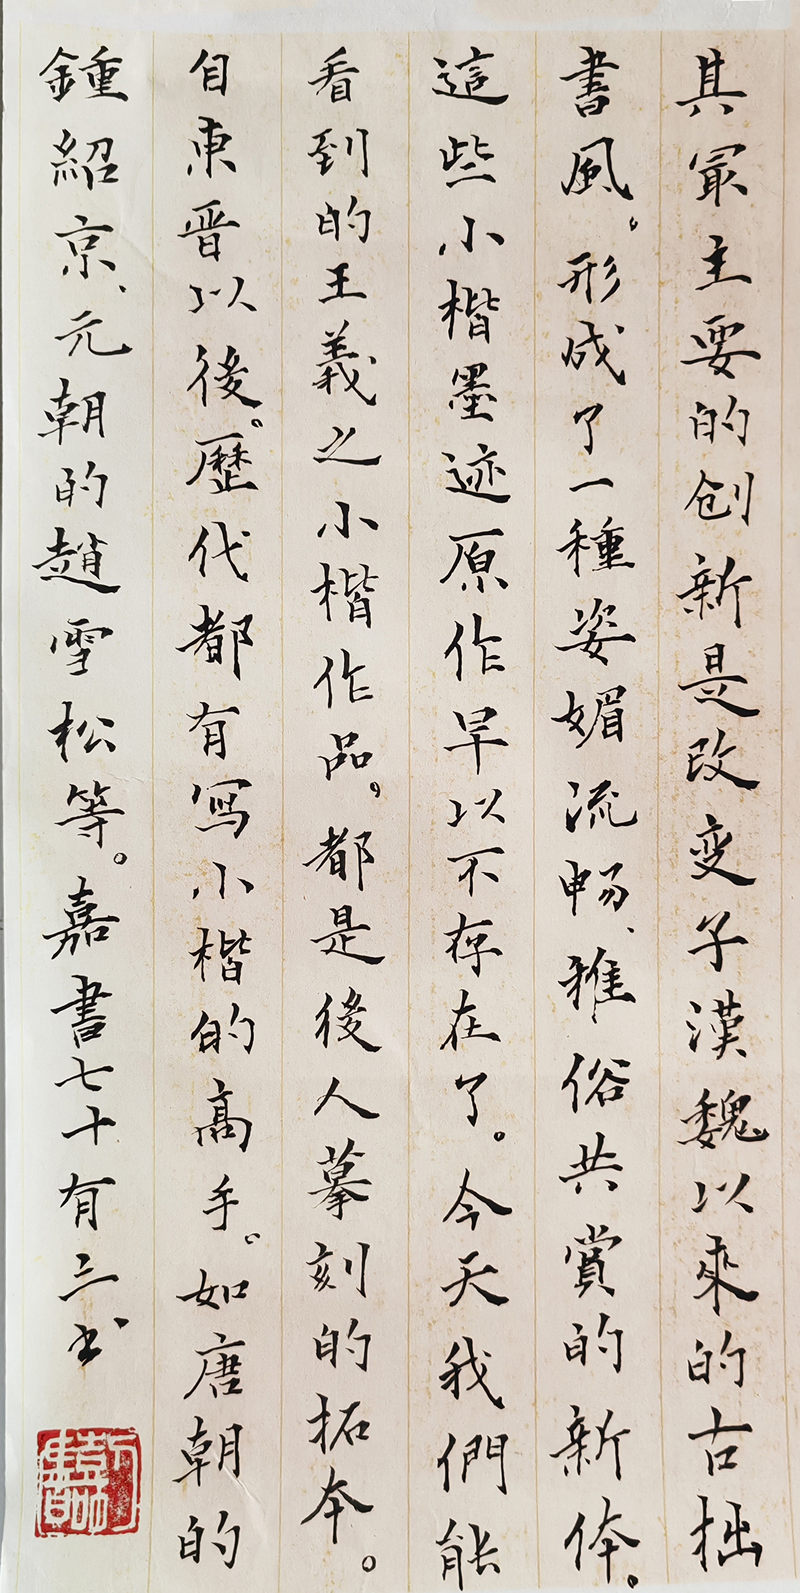 其最主要的创新是改变了漢魏以來的古拙
書風，形成了一種姿媚流畅、雅俗共賞的新体。
這些小楷墨迹原作早以不存在了。今天我們能
看到的王義之小楷作品，都是後人摹刻的拓本。
自東晋以後。歷代都有写小楷的高手。如唐朝的
鍾紹京、元朝的趙雪松等。嘉書七十有三书